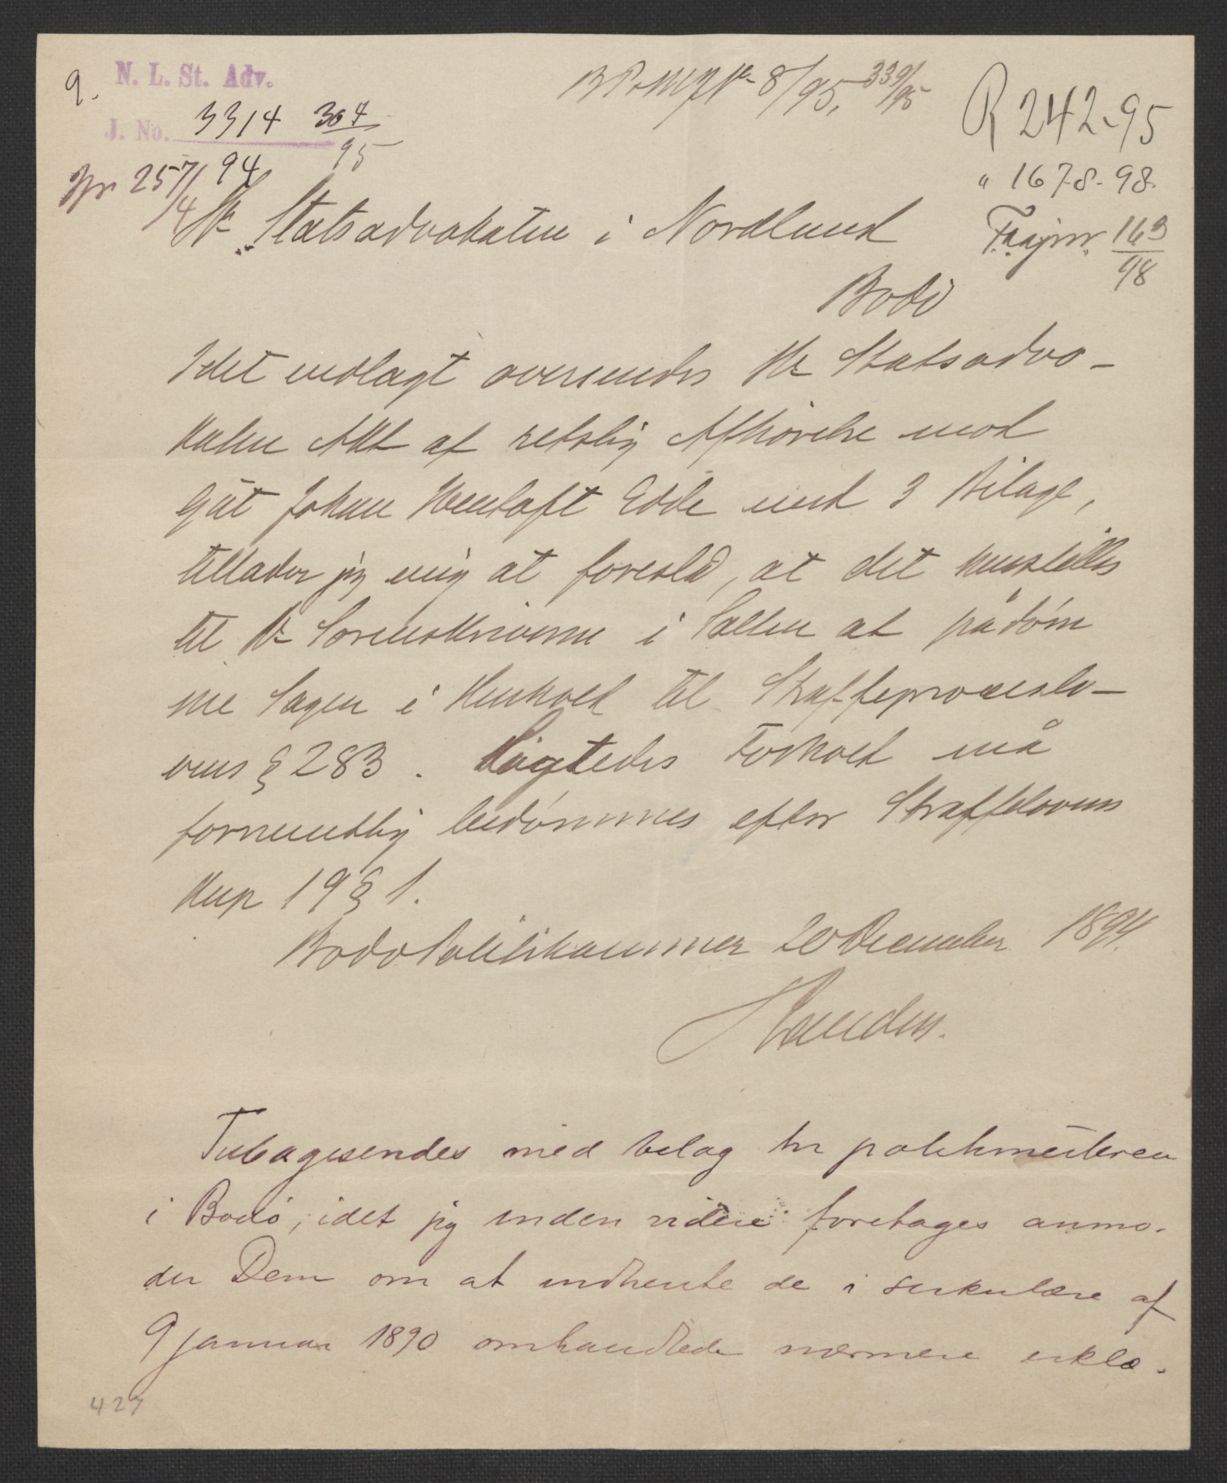 9.
N. L. St. Adv.
J. No. 3314 304
94 95
Jnr 257/4
8/95, 339/95
R 242-95
" 1678-98.
Frajnr. 163/98
Hr Statsadvokaten i Nordland
Bodö
Idet indlagt oversendes Hr Statsadvo-
katen Akt af retslig Afhörelse mod
Gut Johan Edde med 3 Bilage,
tillader jeg mig at foreslå, at det henstilles
til Hr Sorenskriveren i Salten at pådöm
me Sagen i Henhold til Straffeproceslo-
vens § 283. Sigtedes Forhold må
formentlig bedömmes efter Straffelovens
Kap 19 § 1.
Bodö Politikammer 20 December 1894.
Tilbagesendes med bilag hr politimesteren
i Bodö, idet jeg inden videre foretages anmo-
der Dem om at indhente de i sirkulære af
9 januar 1890 omhandlede nærmere erklæ-
427